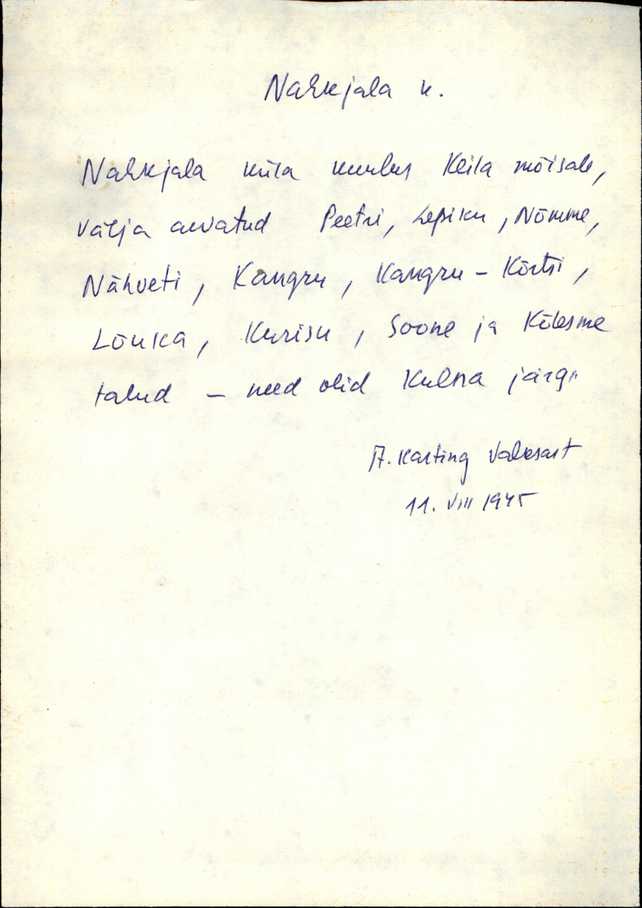 Nahkjala k.
Nahkjala küla kuulus Keila mõisale,
välja arvatud Peetri, Lepiku, Nõmme,
Nähveti, Kangru, Kangru-Kõrtsi,
Lõuka, Kurisu, Soone ja Kõlesme
talud – need olid Kulna järgi
A. Karting Valesast
11. VIII 1945